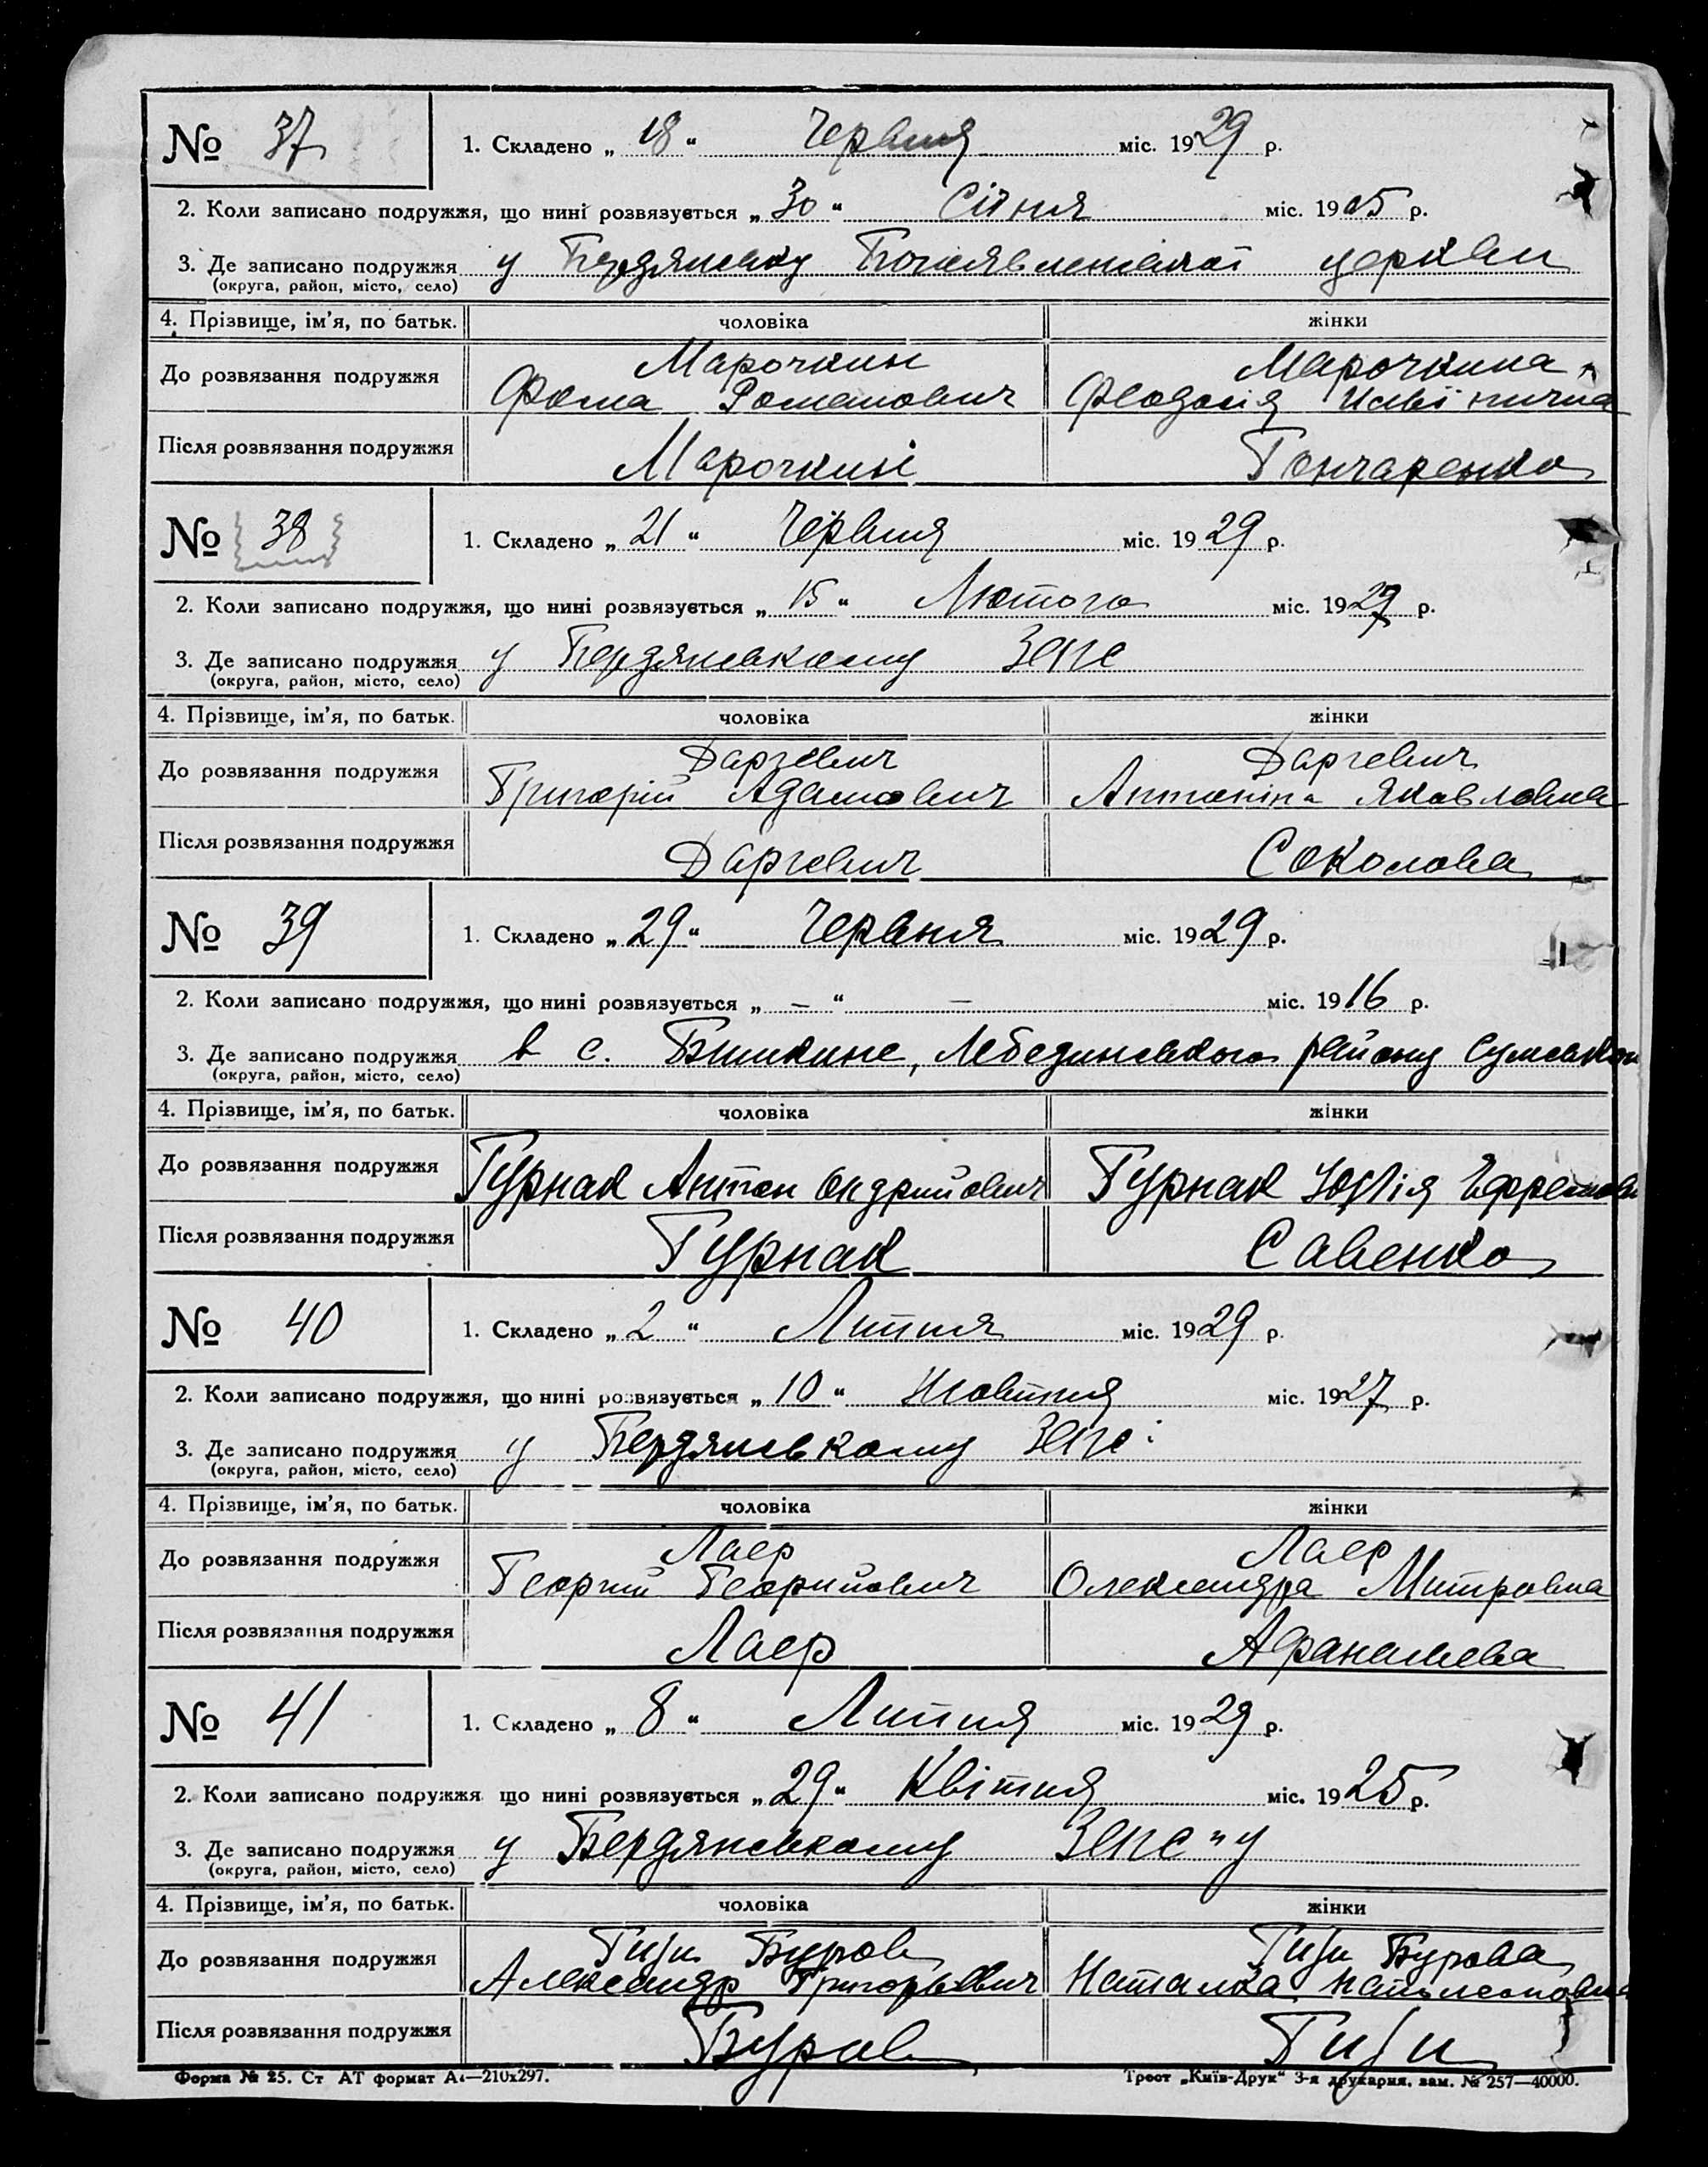 № 37
1. Складено „ 18 “ Червня міс. 1929 р.
2. Коли записано подружжя, що нині розвязується „ 30 “ Січня міс. 1905 р.
3. Де записано подружжя у церкви
(округа, район, місто, село)
4. Прізвище, ім’я, по батьк. чоловіка жінки
Марочкин Марочкина
До розвязання подружжя
Фома Романович Феодосія
Після розвязання подружжя Марочкин Гончаренко
№ 38
1. Складено „ 21 “ Червня міс. 1929 р.
2. Коли записано подружжя, що нині розвязується „ 15 “ Лютого міс. 1927 р.
3. Де записано подружжя у Бердянському
(округа, район, місто, село)
4. Прізвище, ім’я, по батьк. чоловіка жінки
Даргевич Даргевич
До розвязання подружжя
Григорій Адамович Антоніна Яковловна
Після розвязання подружжя Даргевич Соколова
№ 39
1. Складено „ 29 “ Червня міс. 1929 р.
2. Коли записано подружжя, що нині розвязується „ – “ – міс. 1916 р.
3. Де записано подружжя в с. Лебединського району
(округа, район, місто, село)
4. Прізвище, ім’я, по батьк. чоловіка жінки
До розвязання подружжя Гурнак Антон Андрийович Гурнак Юлія
Після розвязання подружжя Гурнак Савенко
№ 40
1. Складено „ 2 “ Липня міс. 1929 р.
2. Коли записано подружжя, що нині розвязується „ 10 “ Жовтня міс. 1927 р.
3. Де записано подружжя у Бердянському
(округа, район, місто, село)
4. Прізвище, ім’я, по батьк. чоловіка жінки
Лаер Лаер
До розвязання подружжя
Георгий Георгийович Олександра Митровна
Після розвязання подружжя Лаер Афанасьева
№ 41
1. Складено „ 8 “ Липня міс. 1929 р.
2. Коли записано подружжя що нині розвязується „ 29 “ Квітня міс. 1925 р.
3. Де записано подружжя у Бердянському
(округа, район, місто, село)
4. Прізвище, ім’я, по батьк. чоловіка жінки
Буров Бурова
До розвязання подружжя
Александр Григорьевич Наталка
Після розвязання подружжя Буров
Форма № 25. Ст АТ формат А4—210х297.
Трест „Київ-Друк“ 3-я друкарня, зам. № 257—40000.